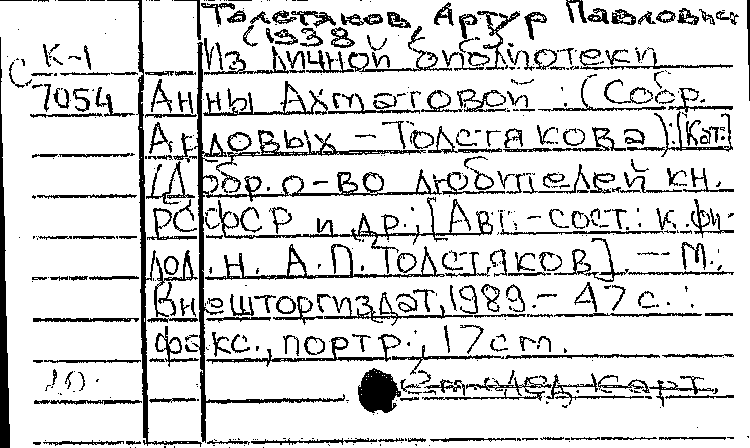 Толстяков, Артур Павлович
(1938
К-1 Из личной библиотеки
С 7054 Анны Ахматовой : (Собр.
Ардовых – Толстякова) : [Кат.]
/ Добр. о-во любителей кн.
РСФСР и др.; [Авт.-сост.: к. фи-
лол. н. А. П. Толстяков]. — М.:
Внешторгиздат, 1989. – 47 с. :
факс., портр.; 17 см.
См. след. карт.